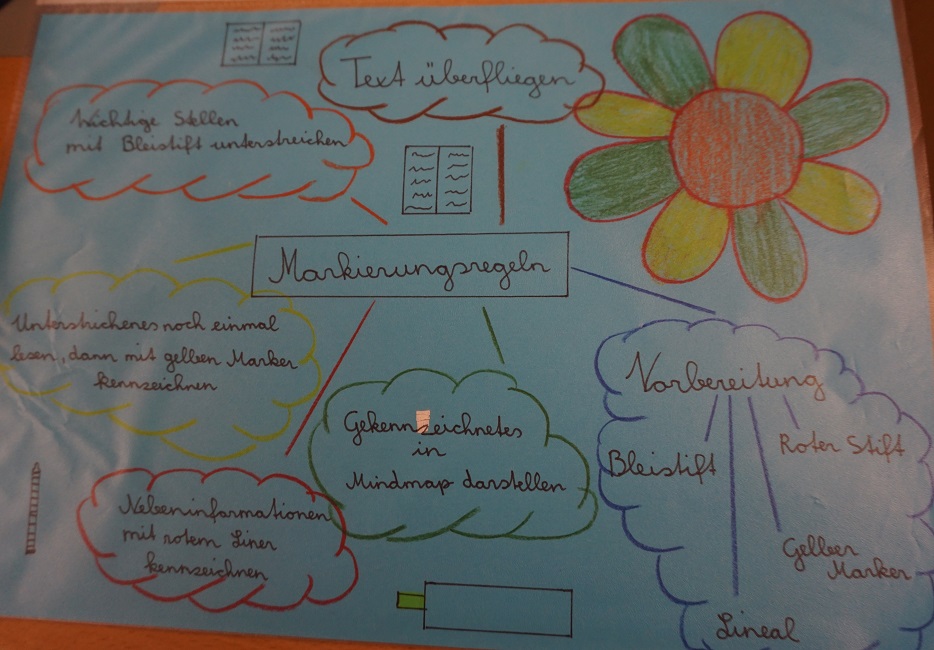 Text überfliegen
wichtige Stellen
mit Bleistift unterstreichen
Markierungsregeln
Unterstrichenes noch einmal
lesen, dann mit gelben Marker
kennzeichnen
Gekennzeichnetes
in
Mindmap darstellen
Nebeninformationen
mit rotem Liner
kennzeichnen
Vorbereitung
Bleistift
Roter Stift
Gelber
Marker
Lineal